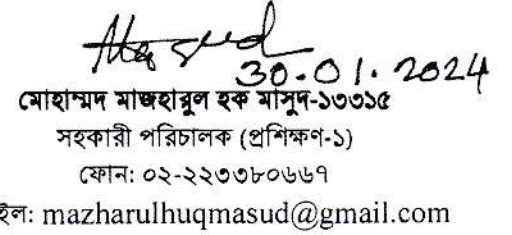 Masud
30.01.2024
মোহাম্মদ মাজহারুল হক মাসুদ-১৩৩১৫
সহকারী পরিচালক (প্রশিক্ষণ-১)
ফোন: ০২-২২৩৩৮০৬৬৭
ইল: mazharulhuqmasud@gmail.com